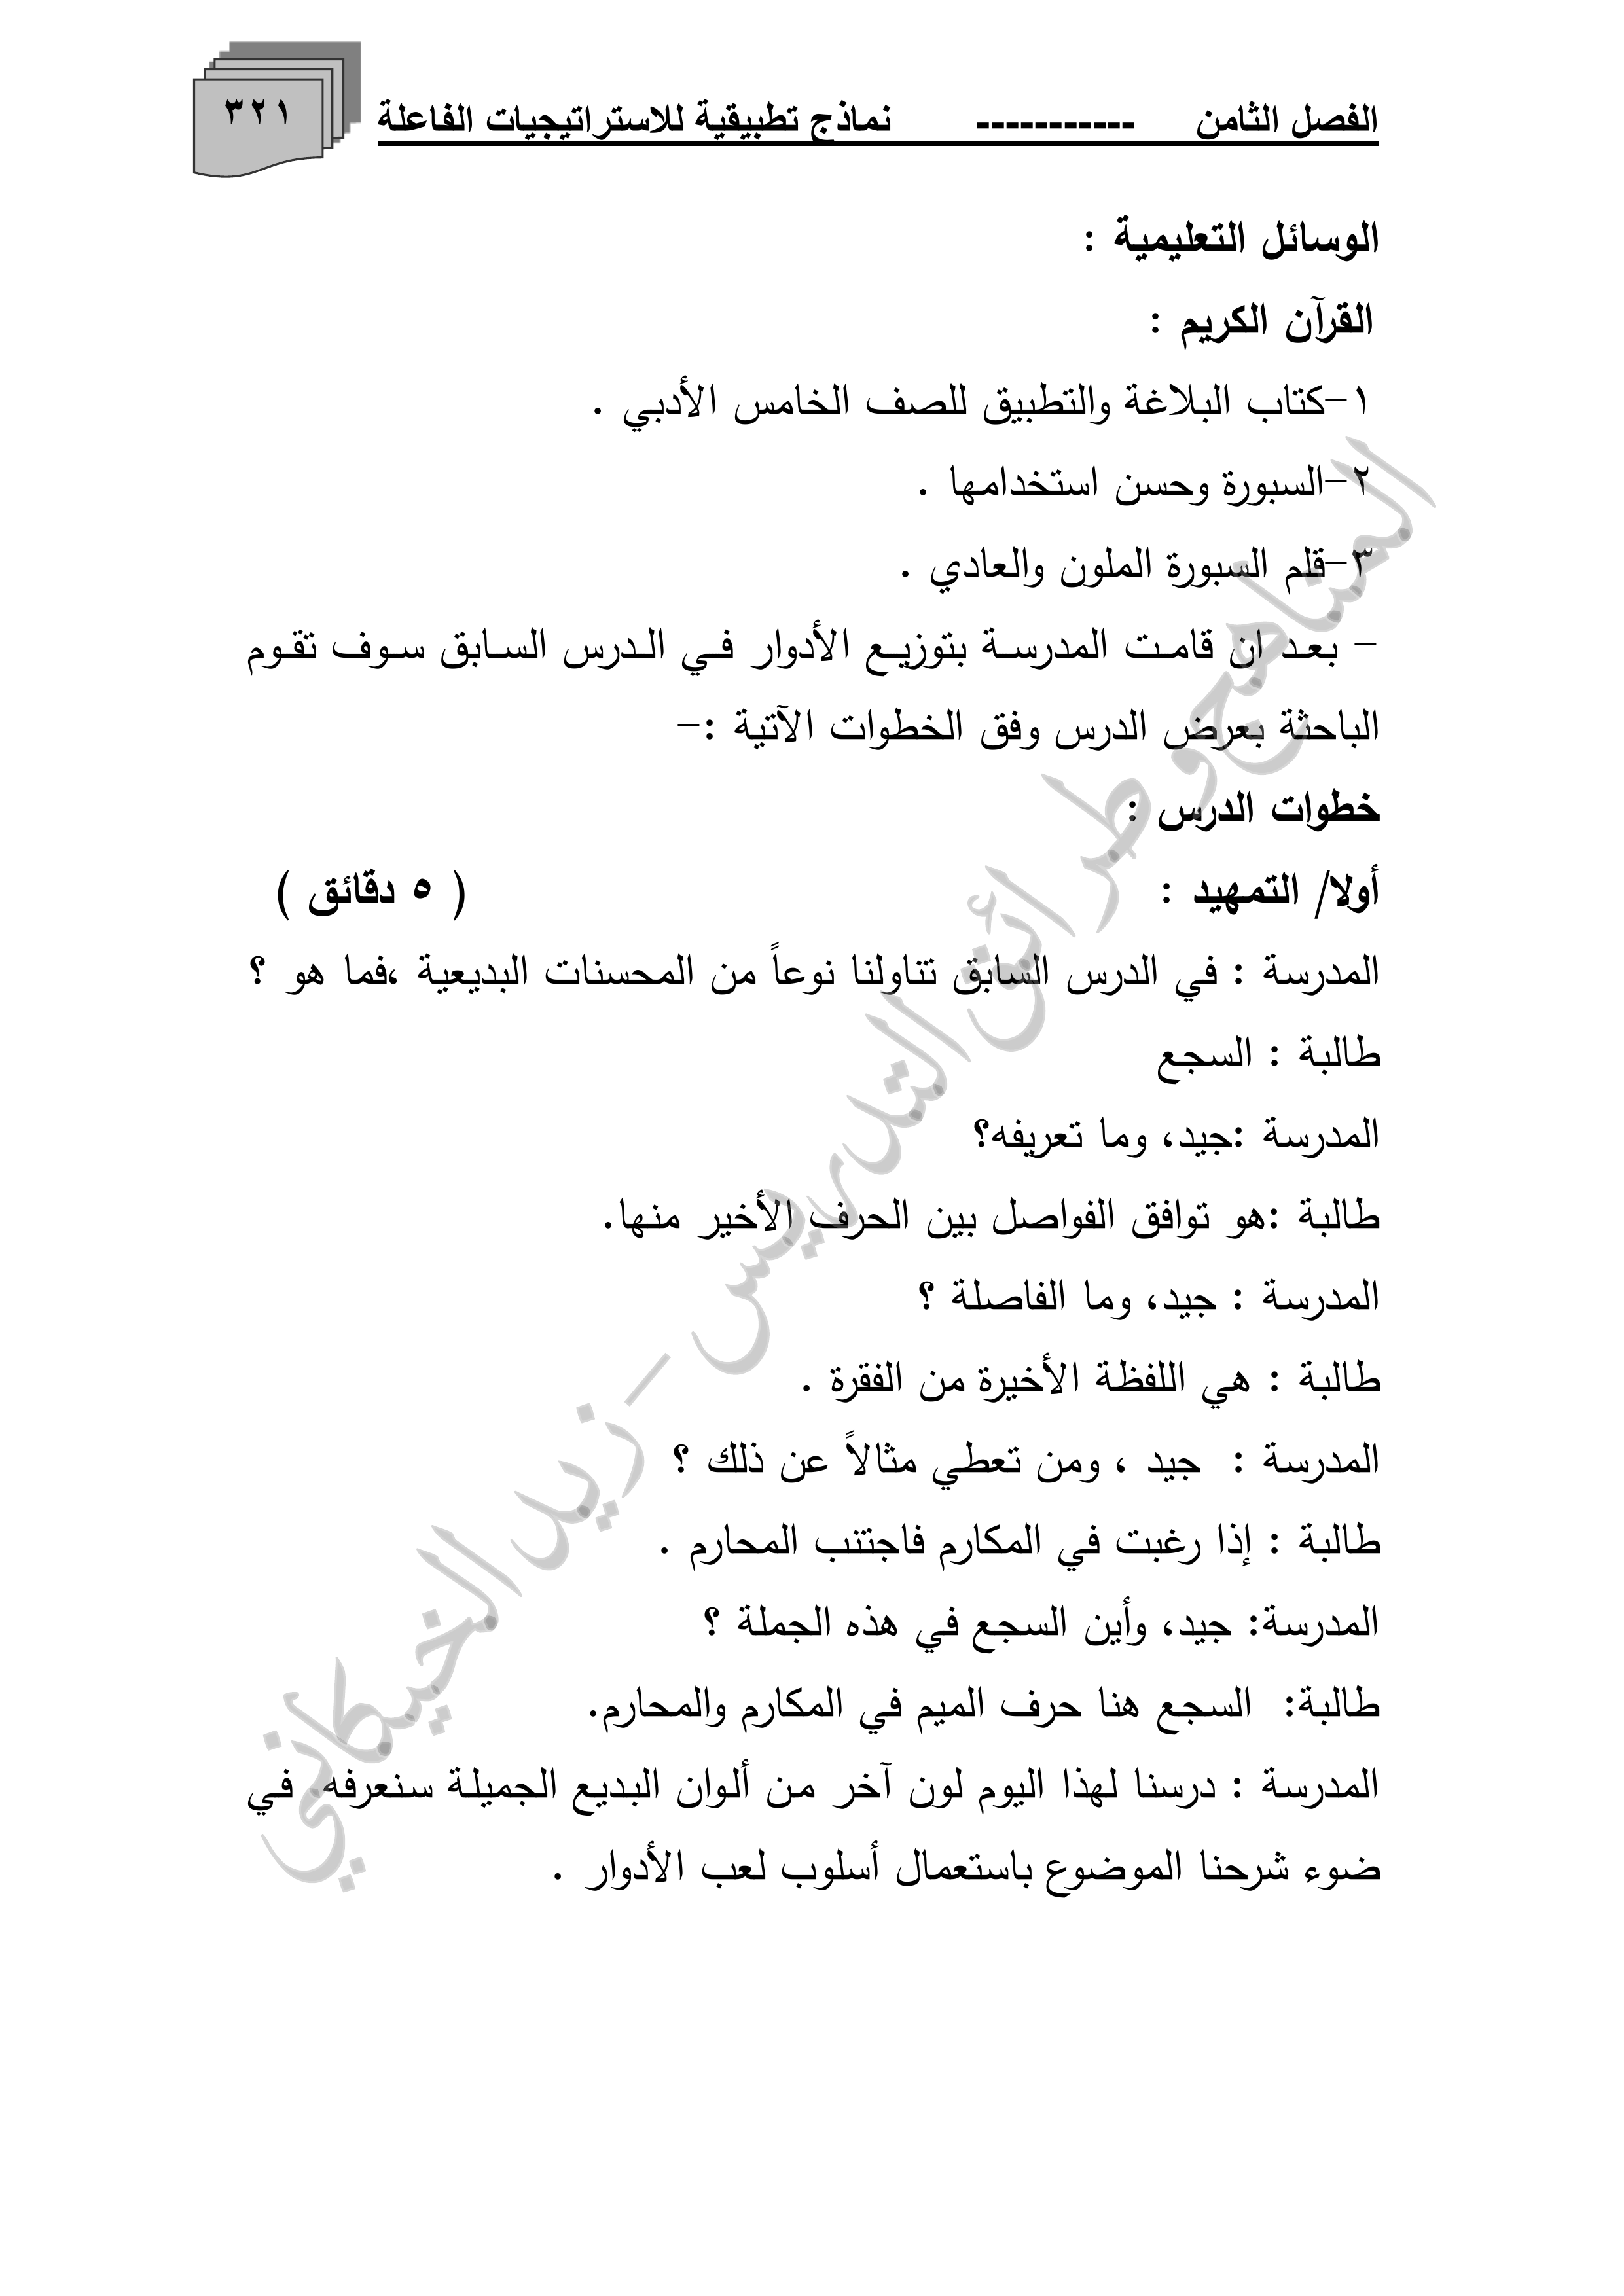 الفصل الثامن ----------- نماذج تطبيقية للاستراتيجيات الفاعلة ٣٢١
الوسائل التعليمية :
القرآن الكريم :
١-كتاب البلاغة والتطبيق للصف الخامس الأدبي .
٢-السبورة وحسن استخدامها .
٣-قلم السبورة الملون والعادي .
- بعد ان قامت المدرسة بتوزيع الأدوار في الدرس السابق سوف تقوم
الباحثة بعرض الدرس وفق الخطوات الآتية :-
خطوات الدرس :
أولا/ التمهيد : ( ٥ دقائق )
المدرسة : في الدرس السابق تناولنا نوعاً من المحسنات البديعية ،فما هو ؟
طالبة : السجع
المدرسة :جيد، وما تعريفه؟
طالبة :هو توافق الفواصل بين الحرف الأخير منها.
المدرسة : جيد، وما الفاصلة ؟
طالبة : هي اللفظة الأخيرة من الفقرة .
المدرسة : جيد ، ومن تعطي مثالاً عن ذلك ؟
طالبة : إذا رغبت في المكارم فاجتنب المحارم .
المدرسة: جيد، وأين السجع في هذه الجملة ؟
طالبة: السجع هنا حرف الميم في المكارم والمحارم.
المدرسة : درسنا لهذا اليوم لون آخر من ألوان البديع الجميلة سنعرفه في
ضوء شرحنا الموضوع باستعمال أسلوب لعب الأدوار .
المناهج وطرائق التدريس - زيد الخيكاني